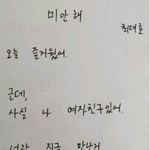 미안해
최대호
오늘 즐거웠어.
근데,
사실 나 여자친구있어.
너랑 지금 만나거